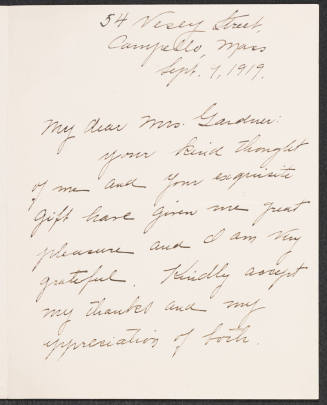 54 Vesey Street,
Campello, Mass
Sept. 7, 1919.
My dear Mrs. Gardner:
Your kind thought
of me and your exquisite
gift have given me great
pleasure and I am very
grateful. Kindly accept
my thanks and my
appreciation of both.